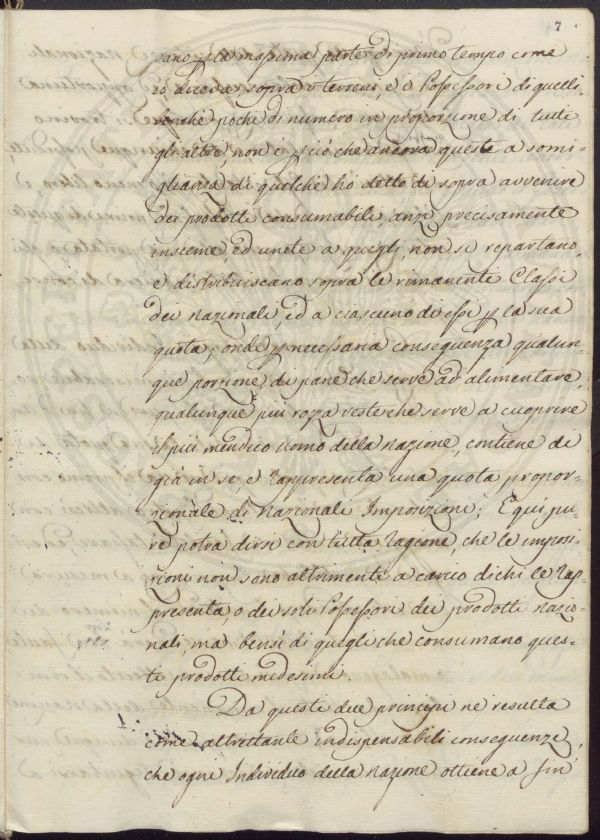 7
sano p la massima parte di primo tempo come
io diceva sopra i terreni, e i Possessori di quelli
benchè pochi di numero in proporzione di tutti
gli altri non è p ciò che ancora queste a somi-
glianza di quelche ho detto di sopra avvenire
dei prodotti consumabili, anzi precisamente
insieme, ed unite a quegli, non si repartano,
e distribuiscano sopra le rimanenti Classi
dei Nazionali, ed a ciascuno di essi p la sua
quota; onde p necessaria conseguenza qualun-
que porzione di pane che serve ad alimentare,
qualunque più rozza veste che serve a cuoprire
il più mendico uomo della Nazione, contiene di
già in se e rappresenta una quota propor-
zionale di Nazionali Imposizioni; E qui pu-
re potrà dirsi con tutta ragione, che le imposi-
zioni non sono altrimenti a carico di chi le rap-
presenta, o dei soli Possessori dei prodotti nazio-
nali, ma bensì di quegli che consumano ques-
ti prodotti medesimi.
Da questi due principi ne resulta
come altrettante indispensabili conseguenze,
che ogni Individuo della Nazione ottiene a fin